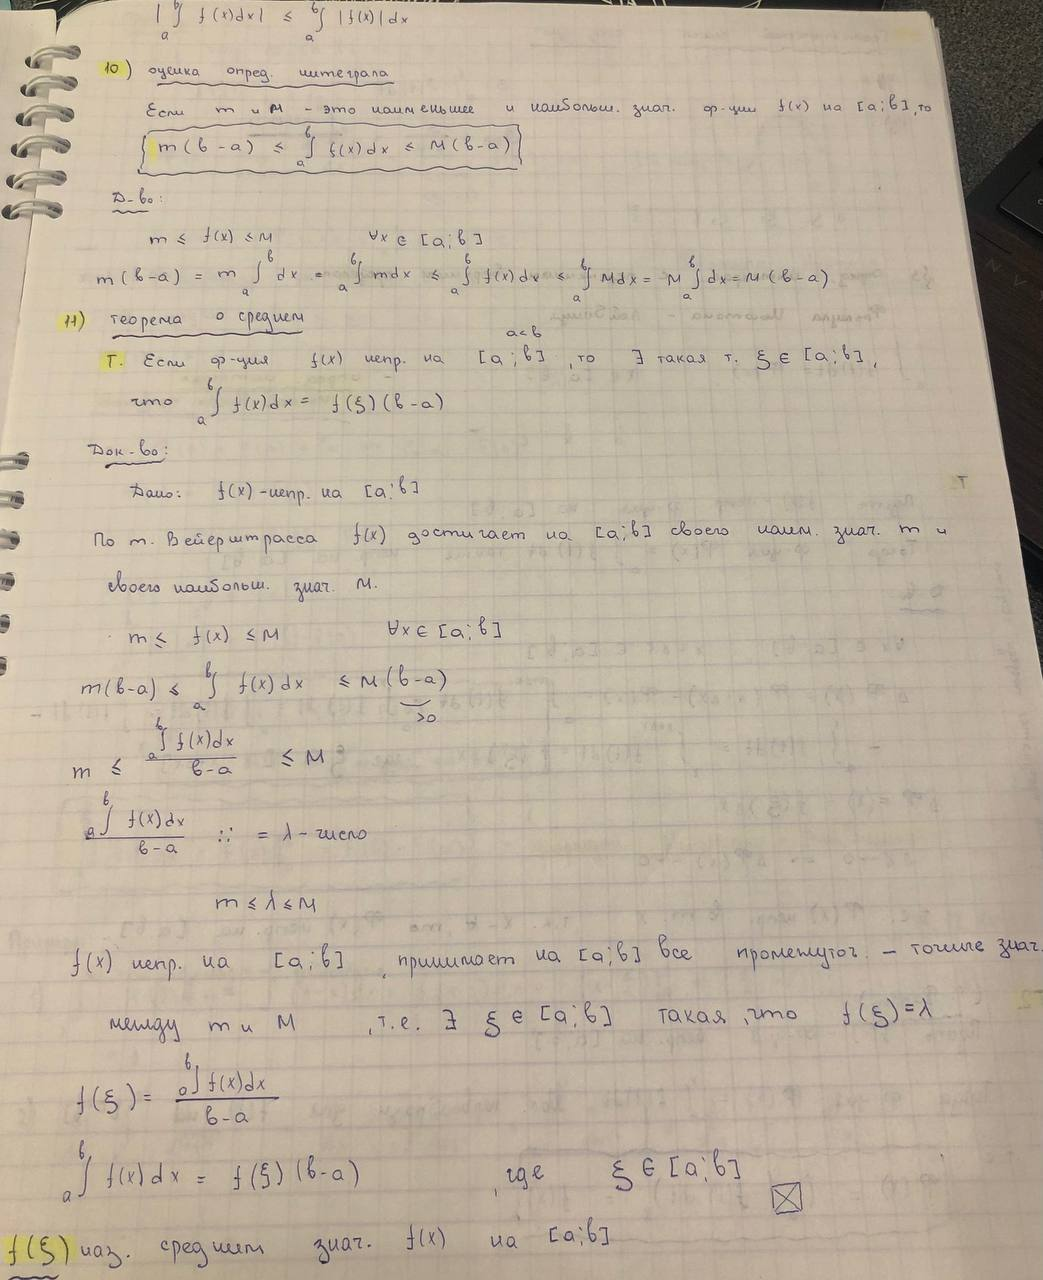 | ∫_a^b f(x)dx | ≤ ∫_a^b |f(x)|dx
10) оценка опред. интеграла
Если m и M - это наименьшее и наибольш. знач. ф-ции f(x) на [a;b], то
m(b-a) ≤ ∫_a^b f(x)dx ≤ M(b-a)
Д-во:
m ≤ f(x) ≤ M ∀x ∈ [a;b]
m(b-a) = m ∫_a^b dx = ∫_a^b mdx ≤ ∫_a^b f(x)dx ≤ ∫_a^b Mdx = M ∫_a^b dx = M(b-a)
11) теорема о среднем
a<b
Т. Если ф-ция f(x) непр. на [a;b], то ∃ такая т. ξ ∈ [a;b],
что ∫_a^b f(x)dx = f(ξ)(b-a)
Док-во:
Дано: f(x) - непр. на [a;b]
По т. Вейерштрасса f(x) достигает на [a;b] своего наим. знач. m и
своего наибольш. знач. M.
m ≤ f(x) ≤ M ∀x ∈ [a;b]
m(b-a) ≤ ∫_a^b f(x)dx ≤ M(b-a)
>0
m ≤ ∫_a^b f(x)dx / b-a ≤ M
∫_a^b f(x)dx / b-a = λ - число
m ≤ λ ≤ M
f(x) непр. на [a;b], принимает на [a;b] все промежуточ. - точные знач.
между m и M, т.е. ∃ ξ ∈ [a;b] такая, что f(ξ)=λ
f(ξ) = ∫_a^b f(x)dx / b-a
∫_a^b f(x)dx = f(ξ)(b-a), где ξ ∈ [a;b]
f(ξ) наз. средним знач. f(x) на [a;b]